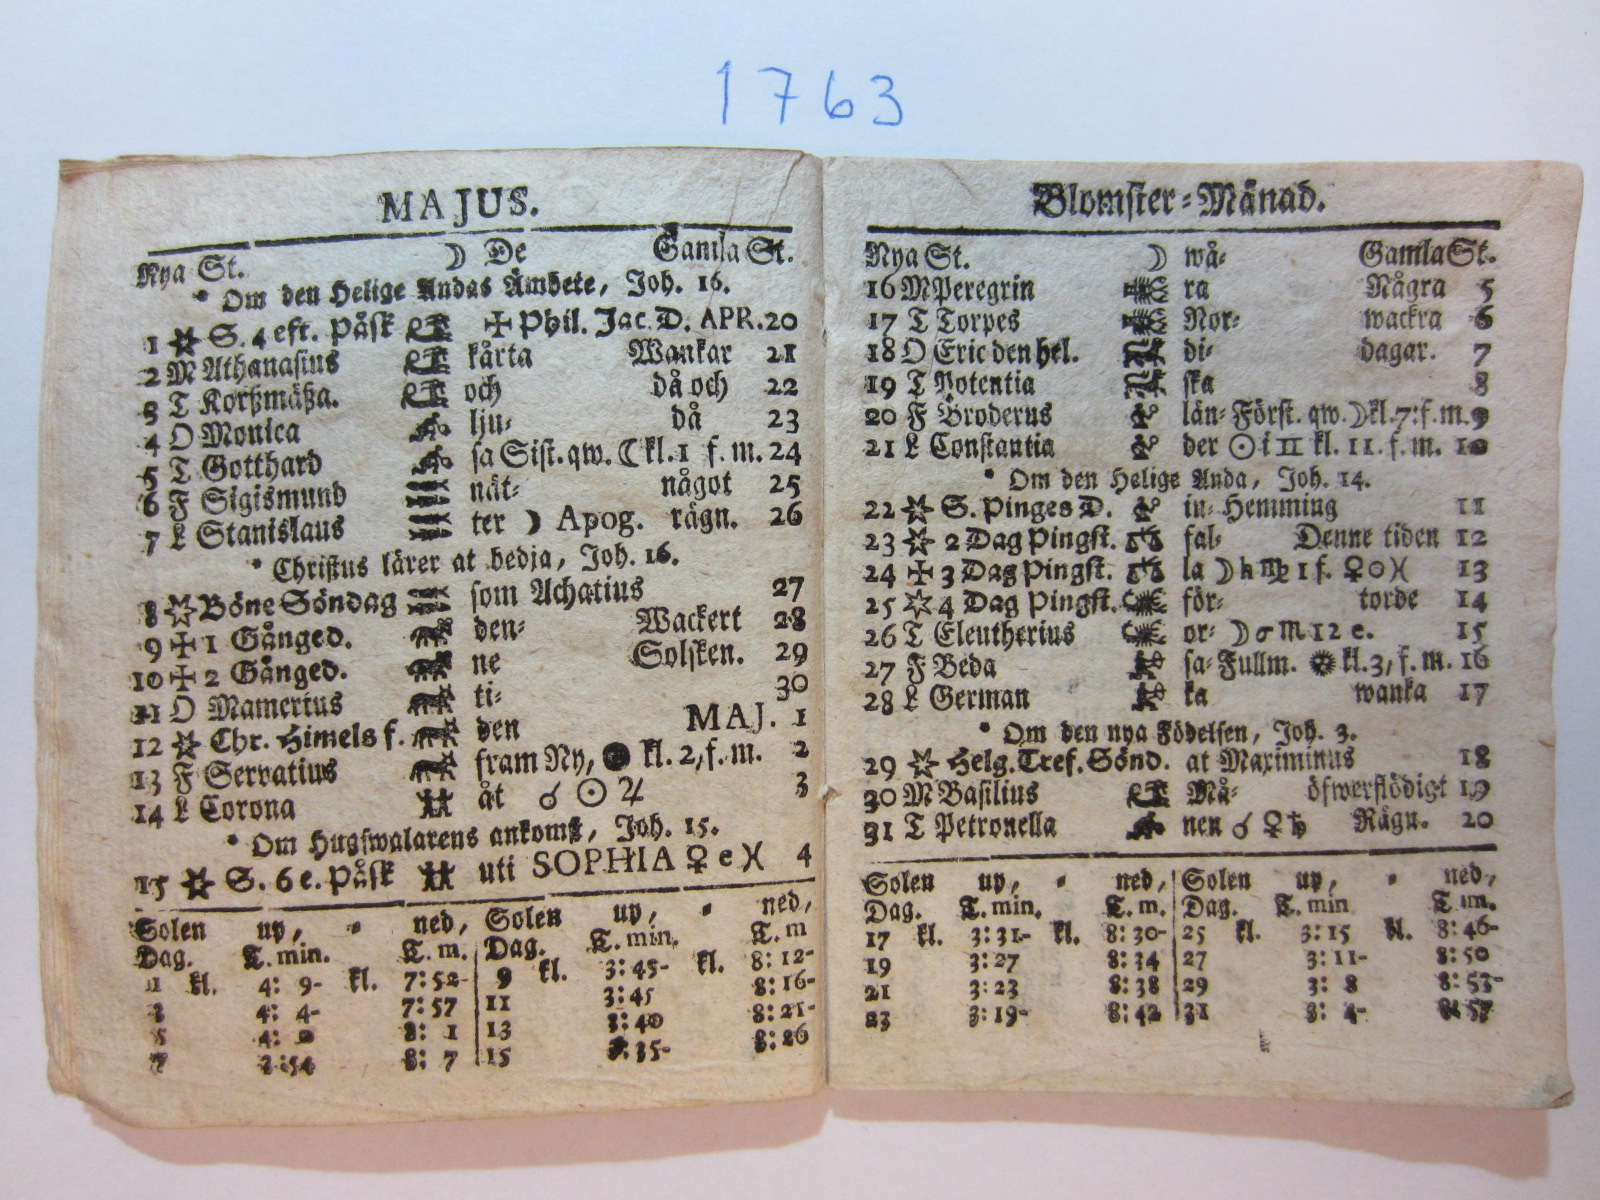 1763
MAJUS.
Nya St. ☽ De Gamla St.
* Om den Helige Andas Ämbete, Joh. 16.
1 S. 4 eft. Påsk ✠ Phil. Jac. D. APR. 20
2 M Athanasius kårta Wankar 21
3 T Korßmäßa. och då och 22
4 O Monica lju- då 23
5 T Gotthard sa Sist. qw. ☾ kl. 1 f. m. 24
6 F Sigismund nät- något 25
7 L Stanislaus ter ☽ Apog. rägn. 26
* Christus lärer at bedja, Joh. 16.
8 Böne Söndag som Achatius 27
9 ✠ 1 Gånged. den- Wackert 28
10 ✠ 2 Gånged. ne Solsken. 29
11 O Mamertus ti- 30
12 Chr. Himels f. den MAJ. 1
13 F Servatius fram Ny, kl. 2, f. m. 2
14 L Corona åt ☌ ☉ ♃ 3
* Om Hugswalarens ankomst, Joh. 15.
15 S. 6 e. Påsk uti SOPHIA ♀ e ♓ 4
Solen up, - ned, Solen up, - ned,
Dag. T. min. T. m. Dag. T. min. T. m
1 kl. 4: 9- kl. 7:52- 9 kl. 3:45- kl. 8:12-
3 4: 4- 7:57 11 3:45 8:16-
5 4: 0 8: 1 13 3:40 8:21-
7 3:54 8: 7 15 3:35- 8:26
Blomster-Månad.
Nya St. ☽ wå- Gamla St.
16 M Peregrin ra Några 5
17 T Torpes Nor- wackra 6
18 O Eric den hel. di- dagar. 7
19 T Potentia ska 8
20 F Broderus län- Först. qw. ☽ kl. 7. f. m. 9
21 L Constantia der ☉ i ♊ kl. 11. f. m. 10
* Om den Helige Anda, Joh. 14.
22 S. Pinges D. in- Hemming 11
23 2 Dag Pingst. fal- Denne tiden 12
24 ✠ 3 Dag Pingst. la ☽ h ♍ 1 f. ♀ ☉ ♓ 13
25 4 Dag Pingst. för- torde 14
26 T Eleutherius or- ☽ σ ♏ 12 e. 15
27 F Beda sa- Fullm. kl. 3, f. m. 16
28 L German ka wanka 17
* Om den nya Födelsen, Joh. 3.
29 Helg. Tref. Sönd. at Maximinus 18
30 M Basilius Må- öfwerflödigt 19
31 T Petronella nen ☌ ♀ ♄ Rägn. 20
Solen up, - ned, Solen up, - ned,
Dag. T. min. T. m. Dag. T. min T. m.
17 kl. 3:31- kl. 8:30- 25 kl. 3:15 kl. 8:46-
19 3:27 8:34 27 3:11- 8:50
21 3:23 8:38 29 3: 8 8:53-
23 3:19- 8:42 31 3: 4- 8:57